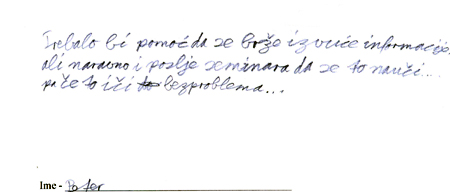 Trebalo bi pomoć da se brže izvuće informacije,
ali naravno i poslje seminara da se to nauči...
pa če to iči bezproblema...
Ime -